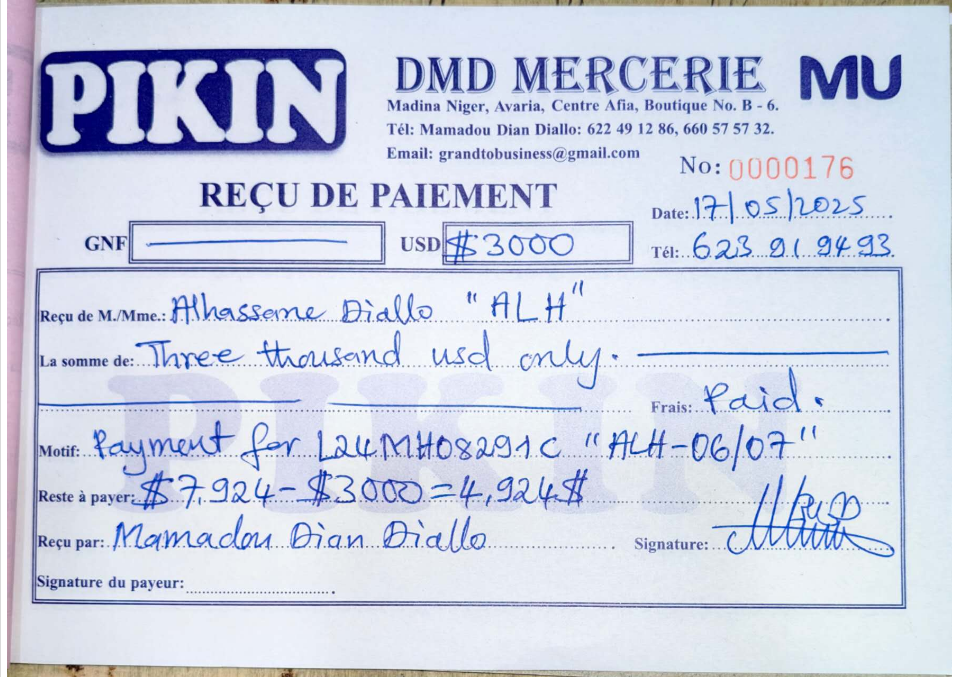 PIKIN
DMD MERCERIE MU
Madina Niger, Avaria, Centre Afia, Boutique No. B - 6.
Tél: Mamadou Dian Diallo: 622 49 12 86, 660 57 57 32.
Email: grandtobusiness@gmail.com
No: 0000176
REÇU DE PAIEMENT
Date: 17/05/2025
GNF USD $3000
Tél: 623 91 94 93
Reçu de M./Mme.: Alhassane Diallo "ALH"
La somme de: Three thousand usd only.
Frais: Paid.
Motif: Payment for L24MH08291C "ALH-06/07"
Reste à payer: $7,924-$3000=4,924$
Reçu par: Mamadou Dian Diallo Signature:
Signature du payeur:
PIKIN